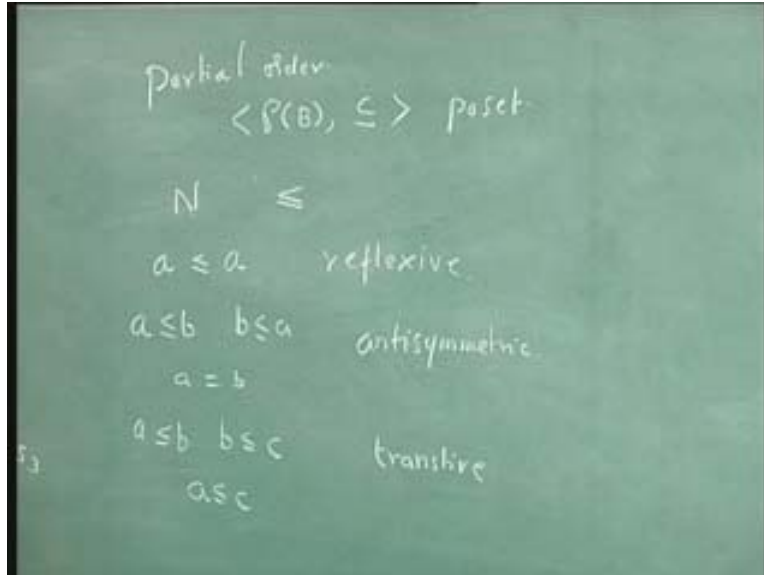 Partial order
<P(B), ⊆> poset
N ≤
a ≤ a reflexive
a ≤ b b ≤ a antisymmetric
a = b
a ≤ b b ≤ c transtive
a ≤ c
s3